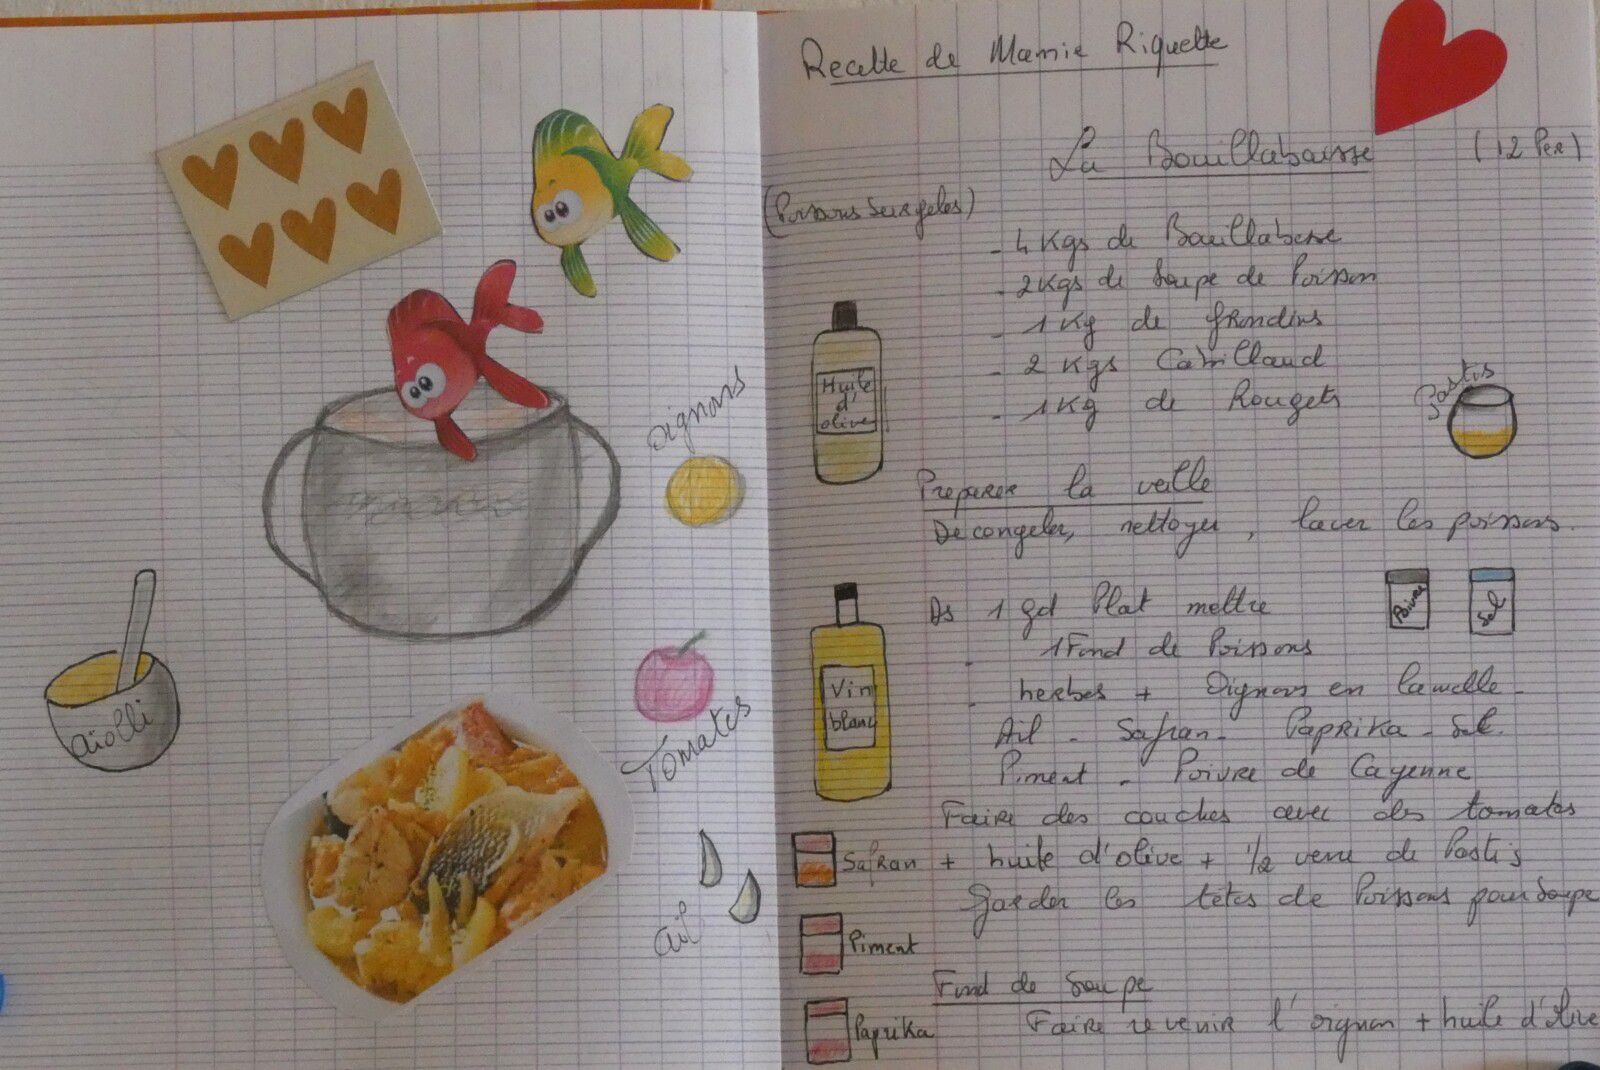 oignons
aiolli
Tomates
ail
Recette de Mamie Riquette
La Bouillabaisse (12 Per)
(Poissons Surgeles)
- 4 Kgs de Bouillabesse
- 2Kgs de Soupe de Poisson
- 1 Kg de Grondins
- 2 Kgs Cabillaud
- 1 Kg de Rougets
Huile
d'
olive
Pastis
Preparer la veille
Decongeler, nettoyer, laver les poissons.
Ds 1 gd Plat mettre
Poivre
Sel
- 1 Fond de Poissons
- herbes + Oignons en lamelle -
Ail - Safran - Paprika - Sel.
Piment - Poivre de Cayenne
Vin
blanc
Faire des couches avec des tomates
+ huile d'olive + 1/2 verre de Pastis
Safran
Garder les têtes de Poissons pour Soupe
Piment
Fond de Soupe
Faire revenir l'oignon + huile d'olive
Paprika